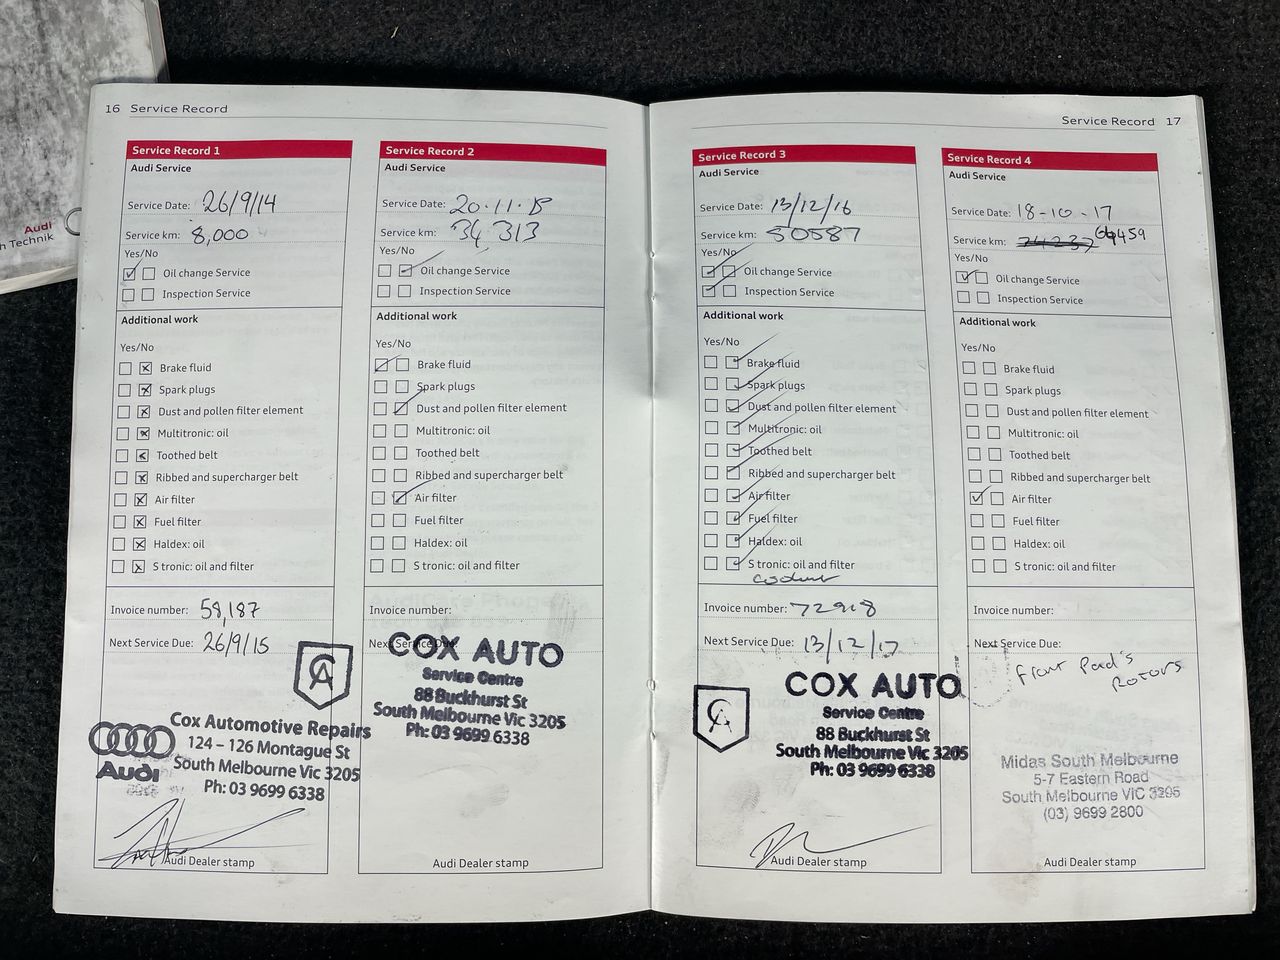 Audi
h Technik
16 Service Record
Service Record 1
Audi Service
Service Date: 26/9/14
Service km: 8,000
Yes/No
Oil change Service
Inspection Service
Additional work
Yes/No
Brake fluid
Spark plugs
Dust and pollen filter element
Multitronic: oil
Toothed belt
Ribbed and supercharger belt
Air filter
Fuel filter
Haldex: oil
S tronic: oil and filter
Invoice number: 58,187
Next Service Due: 26/9/15
Cox Automotive Repairs
124 – 126 Montague St
South Melbourne Vic 3205
Ph: 03 9699 6338
Audi
Audi Dealer stamp
Service Record 2
Audi Service
Service Date: 20.11.15
Service km: 34,313
Yes/No
Oil change Service
Inspection Service
Additional work
Yes/No
Brake fluid
Spark plugs
Dust and pollen filter element
Multitronic: oil
Toothed belt
Ribbed and supercharger belt
Air filter
Fuel filter
Haldex: oil
S tronic: oil and filter
Invoice number:
Next Service Due:
COX AUTO
Service Centre
88 Buckhurst St
South Melbourne Vic 3205
Ph: 03 9699 6338
Audi Dealer stamp
Service Record 17
Service Record 3
Audi Service
Service Date: 13/12/16
Service km: 50587
Yes/No
Oil change Service
Inspection Service
Additional work
Yes/No
Brake fluid
Spark plugs
Dust and pollen filter element
Multitronic: oil
Toothed belt
Ribbed and supercharger belt
Air filter
Fuel filter
Haldex: oil
S tronic: oil and filter
coolant
Invoice number: 72918
Next Service Due: 13/12/17
COX AUTO
Service Centre
88 Buckhurst St
South Melbourne Vic 3205
Ph: 03 9699 6338
Audi Dealer stamp
Service Record 4
Audi Service
Service Date: 18-10-17
Service km: 74237 64459
Yes/No
Oil change Service
Inspection Service
Additional work
Yes/No
Brake fluid
Spark plugs
Dust and pollen filter element
Multitronic: oil
Toothed belt
Ribbed and supercharger belt
Air filter
Fuel filter
Haldex: oil
S tronic: oil and filter
Invoice number:
Next Service Due:
Front Pad's
Rotors
Midas South Melbourne
5-7 Eastern Road
South Melbourne VIC 3205
(03) 9699 2800
Audi Dealer stamp